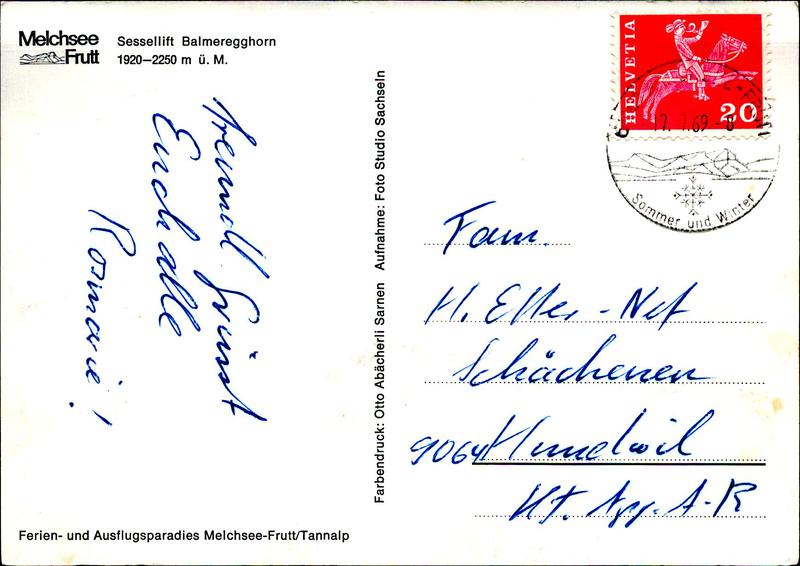 Melchsee
Frutt
Sessellift Balmeregghorn
1920–2250 m ü. M.
Freundl. Grüsst
Euch alle
Rosmarie!
Farbendruck: Otto Abächerli Sarnen Aufnahme: Foto Studio Sachseln
HELVETIA
20
17. 7.69 - 8
Sommer und Winter
Fam.
H. Elter - Nef
Schächenen
9064 Hundwil
Kt. App. A-R
Ferien- und Ausflugsparadies Melchsee-Frutt/Tannalp